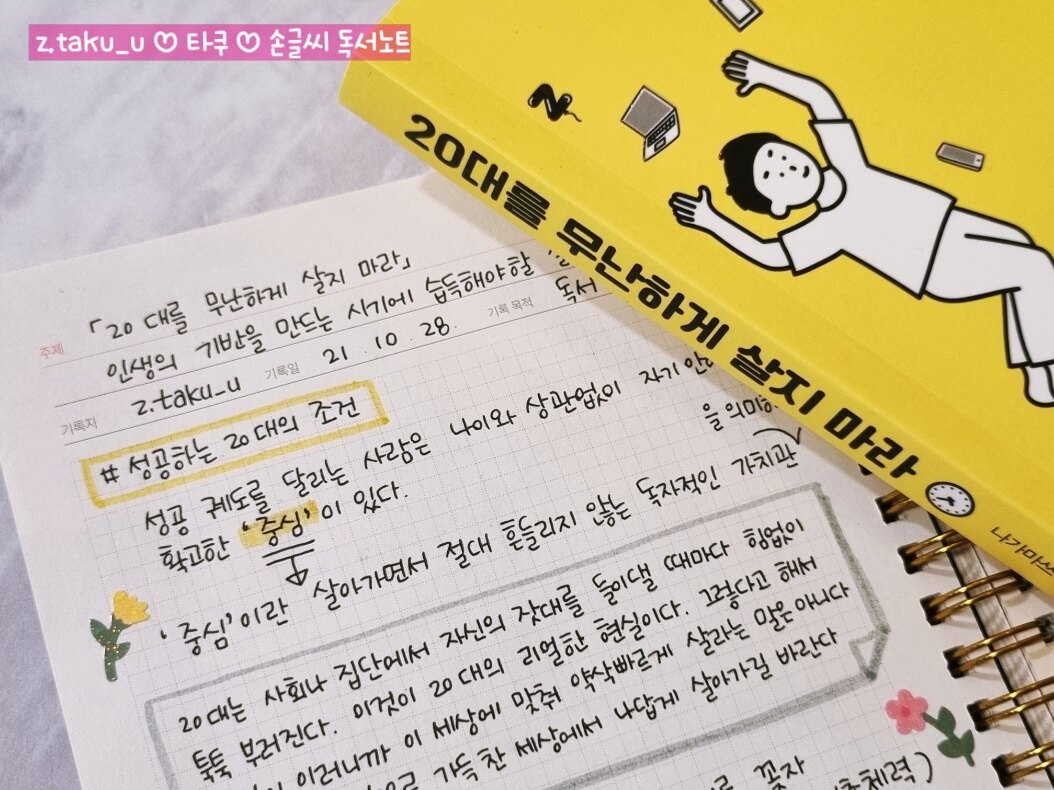 z.taku_u ♡ 타쿠 ♡ 손글씨 독서노트
20대를 무난하게 살지 마라
주제 「20대를 무난하게 살지 마라」
인생의 기반을 만드는 시기에 습득해야할
기록자 z.taku_u 기록일 21. 10. 28. 기록 목적 독서
# 성공하는 20대의 조건
성공 궤도를 달리는 사람은 나이와 상관없이 자기
확고한 '중심'이 있다.
을
'중심'이란 살아가면서 절대 흔들리지 않는 독자적인 가치관
20대는 사회나 집단에서 자신의 잣대를 들이댈 때마다 힘없이
툭툭 부러진다. 이것이 20대의 리얼한 현실이다. 그렇다고 해서
이러니까 이 세상에 맞춰 약삭빠르게 살라는 말은 아니다
가득 찬 세상에서 나답게 살아가길 바란다
꽃자